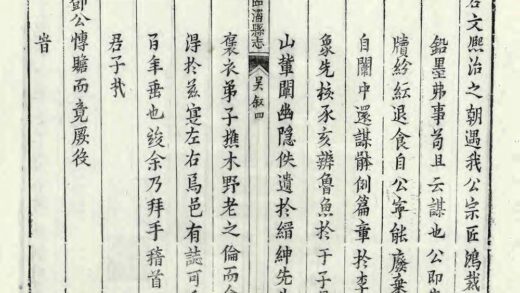 文熙治之朝遇我公宗匠鴻裁
鉛墨茀事苟且云謀也公即
牘紛紜退食自公寧能廢棄
自闈中還謀骵例篇章於李
象先核豕亥辨魯魚於于子
山輩闡幽隱佚遺於縉紳先
臨淄縣志 吴叙四
褒衣弟子樵木野老之倫而
淂於茲寔左右焉邑有誌可
百年垂也竣余乃拜手稽首
君子哉
鄧公愽贍而竟厥後
旹